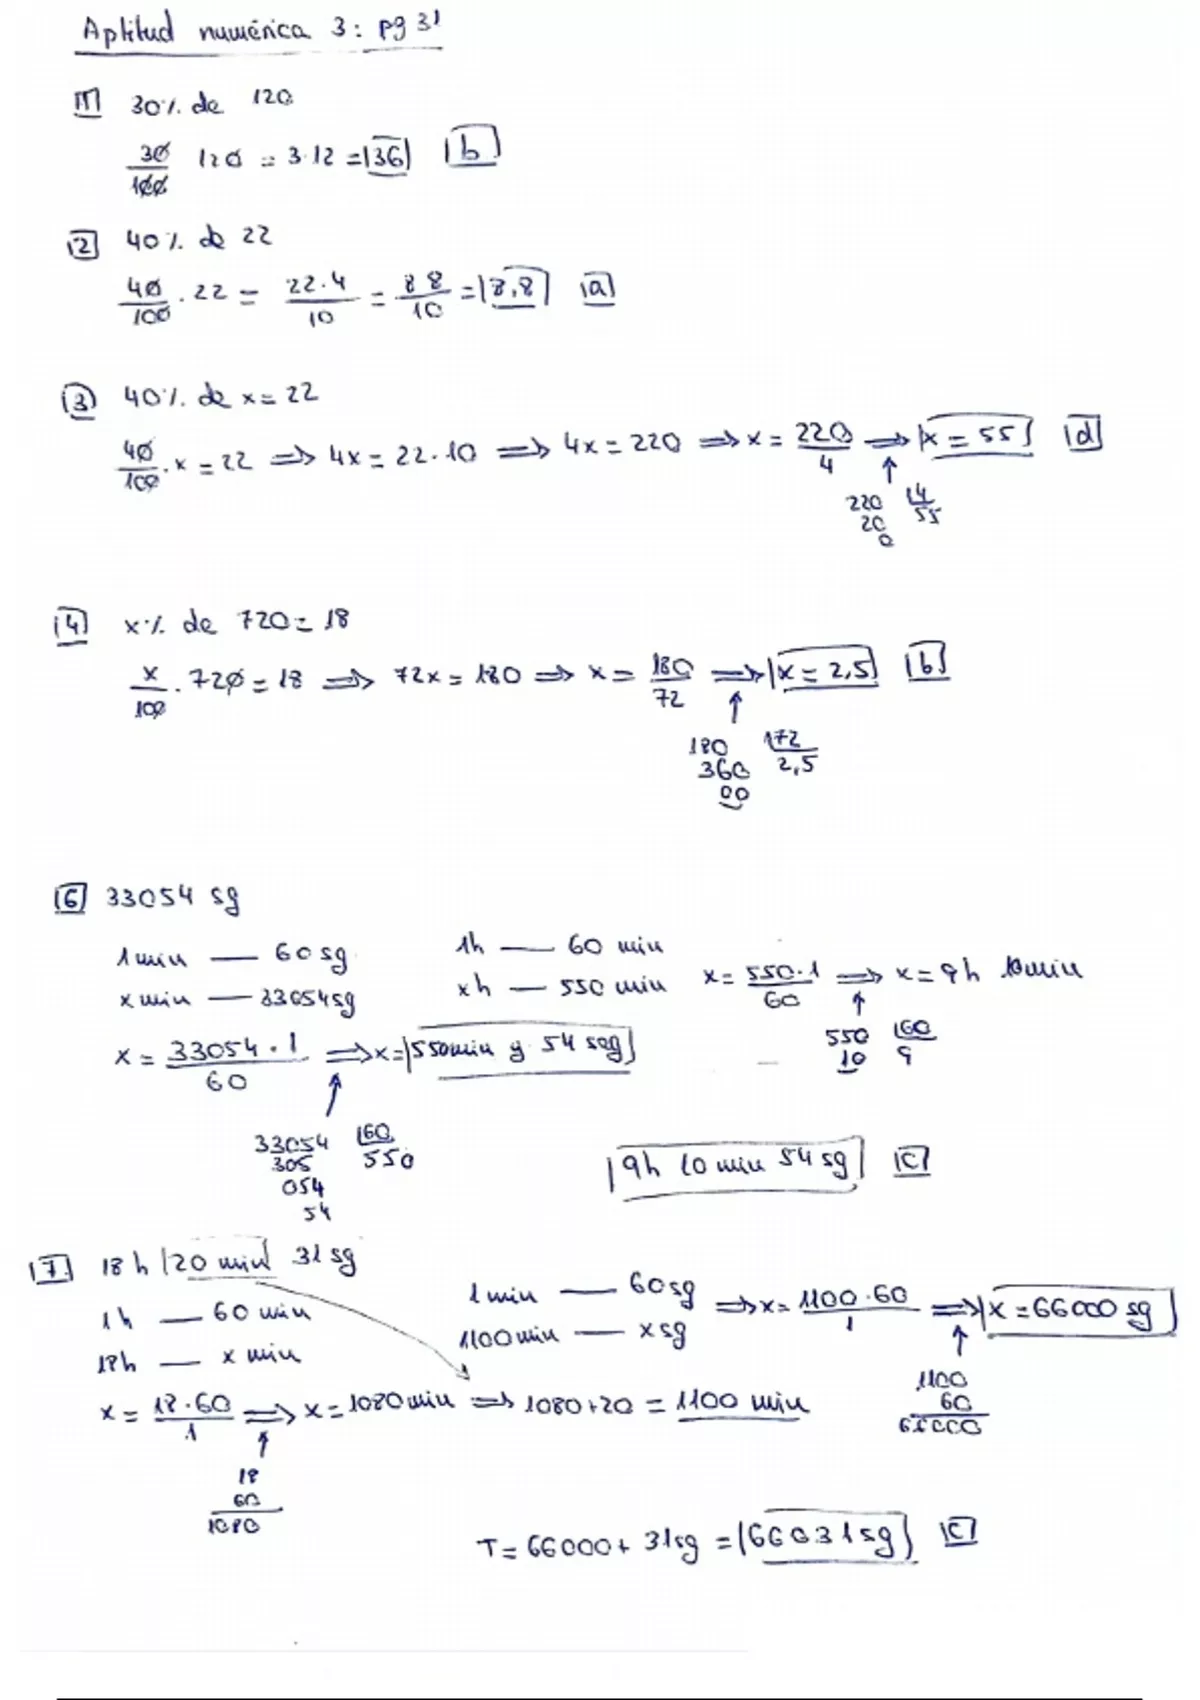 Aptitud numérica 3: pg 31
1 30% de 120
30/100 120 = 3·12 = 36 b
2 40% de 22
40/100 · 22 = 22·4/10 = 88/10 = 8,8 a
3 40% de x = 22
40/100 · x = 22 ⟹ 4x = 22·10 ⟹ 4x = 220 ⟹ x = 220/4 ⟹ x = 55 d
220 4
20 55
0
4 x% de 720 = 18
x/100 · 720 = 18 ⟹ 72x = 180 ⟹ x = 180/72 ⟹ x = 2,5 b
180 72
360 2,5
00
6 33054 sg
1 min — 60 sg 1h — 60 min
x min — 33054 sg xh — 550 min x = 550·1/60 ⟹ x = 9h 10 min
x = 33054·1/60 ⟹ x = 550 min y 54 seg
550 60
10 9
33054 60
305 550
054
54
9h 10 min 54 sg c
7 18h 20 min 31 sg
1h — 60 min 1 min — 60 sg
18h — x min 1100 min — x sg ⟹ x = 1100·60/1 ⟹ x = 66000 sg
x = 18·60/1 ⟹ x = 1080 min ⟹ 1080+20 = 1100 min
1100
60
66000
18
60
1080
T = 66000 + 31 sg = 66031 sg c